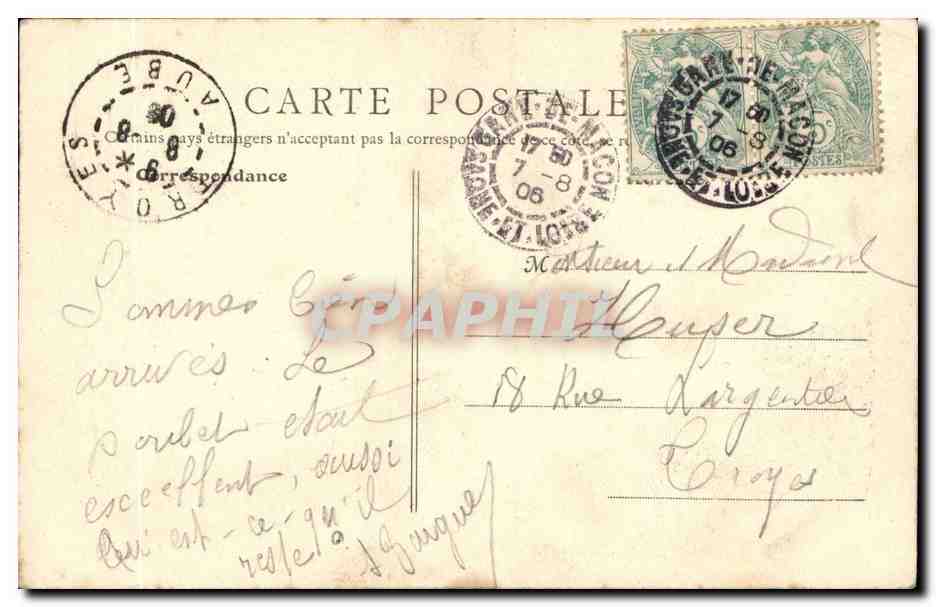 CARTE POSTALE
Certains pays étrangers n'acceptant pas la correspondance de ce côté, se re
Correspondance
TROYES AUBE
8 * 9
8 06
GARE-DE-MACON
SAONE-ET-LOIRE
17 30
7 -8
06
GARE-DE-MACON
SAONE-ET-LOIRE
17 30
7 -8
06
5c
POSTES
Monsieur et Madame
Huper
18 Rue Largentier
Troyes
Sommes bien
arrivés. Le
poulet était
excellent, aussi
Qu'est-ce-qu'il
reste?
CPAPHIL